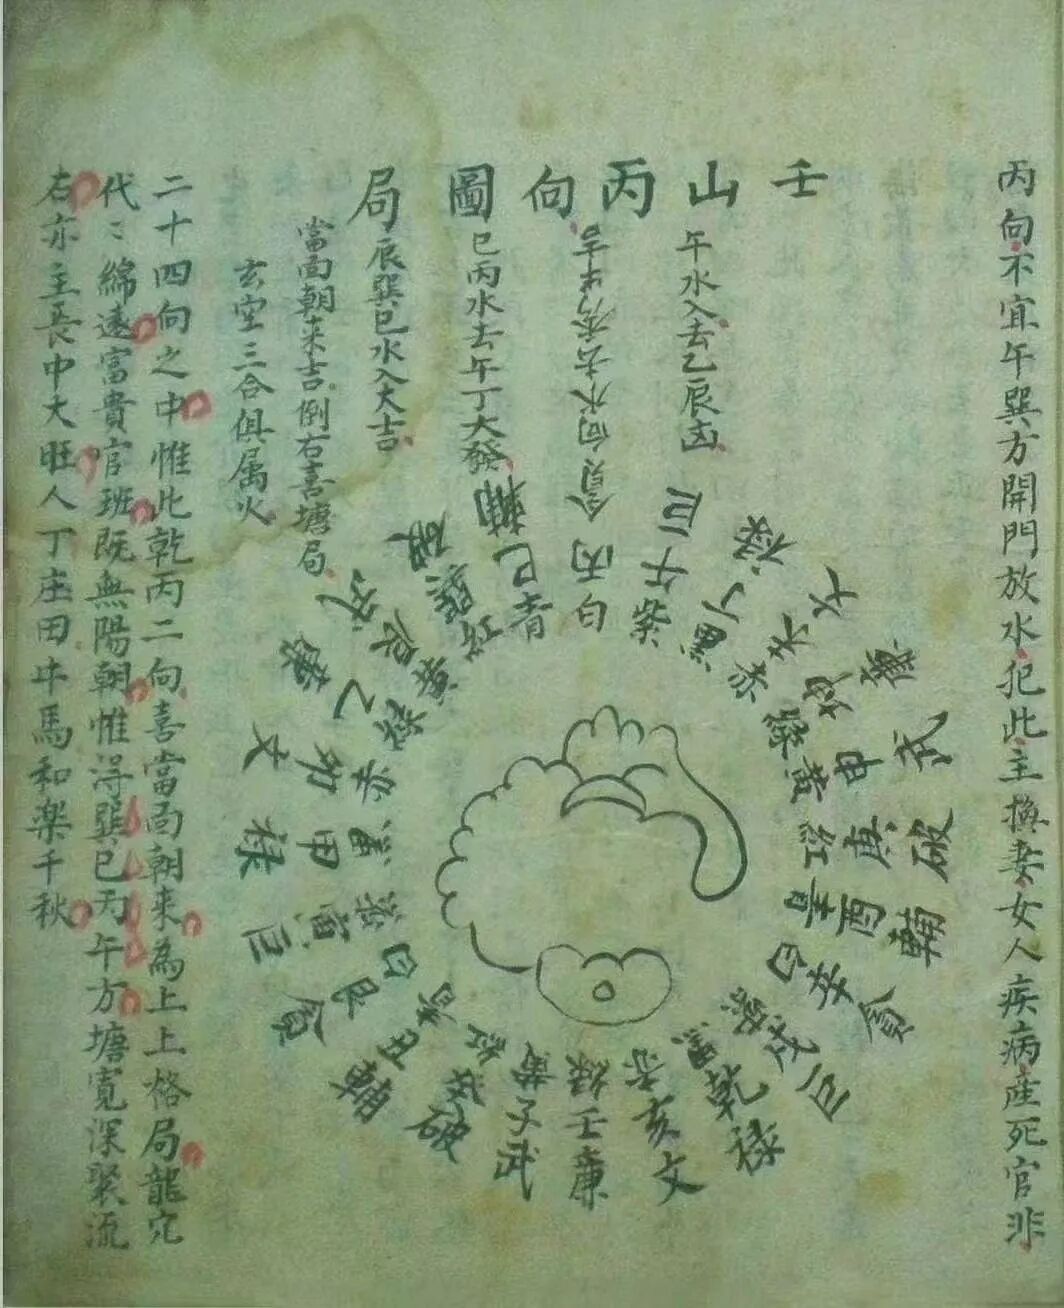 丙向不宜午巽方開門放水犯此主換妻女人疾病產死官非
壬山丙向圖局
午水入去乙辰凶
貪向水去
巳丙水去午丁大發
辰巽巳水入大吉
當面朝来吉倒右喜塘局
玄空三合俱属火
丙
白
巳
青
輔
巽
破
乙
卯
文
甲
祿
巨
艮
白
貪
丑
破
子
武
黃
壬
廉
綠
亥
文
乾
祿
巨
辛
貪
酉
輔
庚
破
紅
申
武
黃
廉
丁
祿
黑
午
巨
紫
二十四向之中惟此乾丙二向喜當面朝来為上上格局龍穴
代〻綿遠富貴官班既無陽朝惟淂巽巳丙午方塘寬深聚流
右亦主長中大旺人丁庄田牛馬和楽千秋